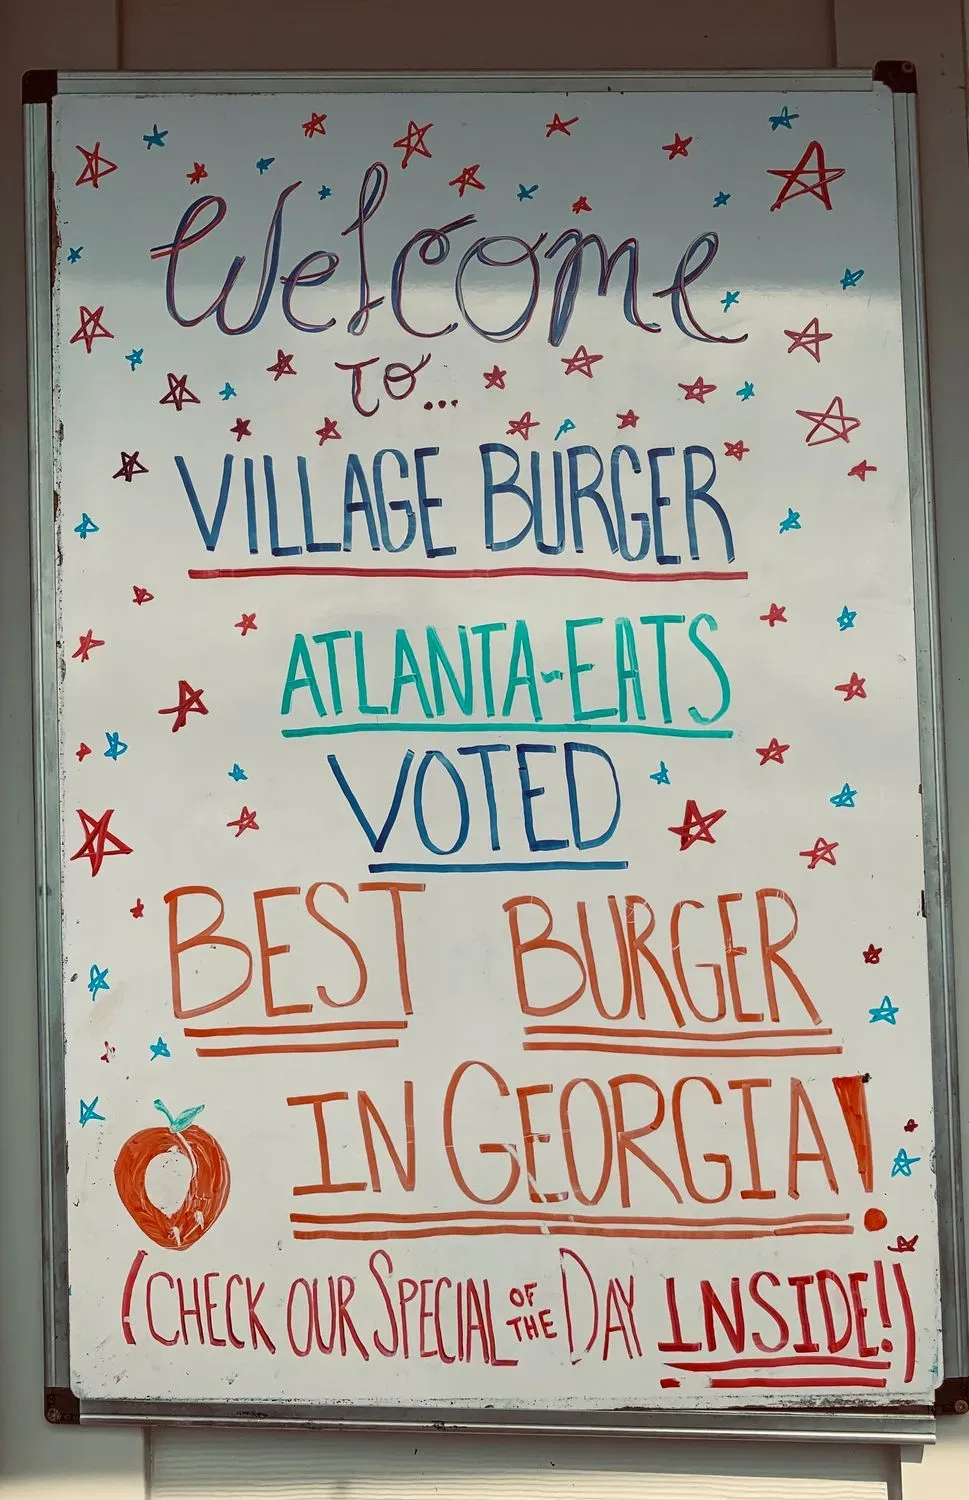 Welcome
to...
VILLAGE BURGER
ATLANTA-EATS
VOTED
BEST BURGER
IN GEORGIA!
(CHECK OUR SPECIAL OF THE DAY INSIDE!)